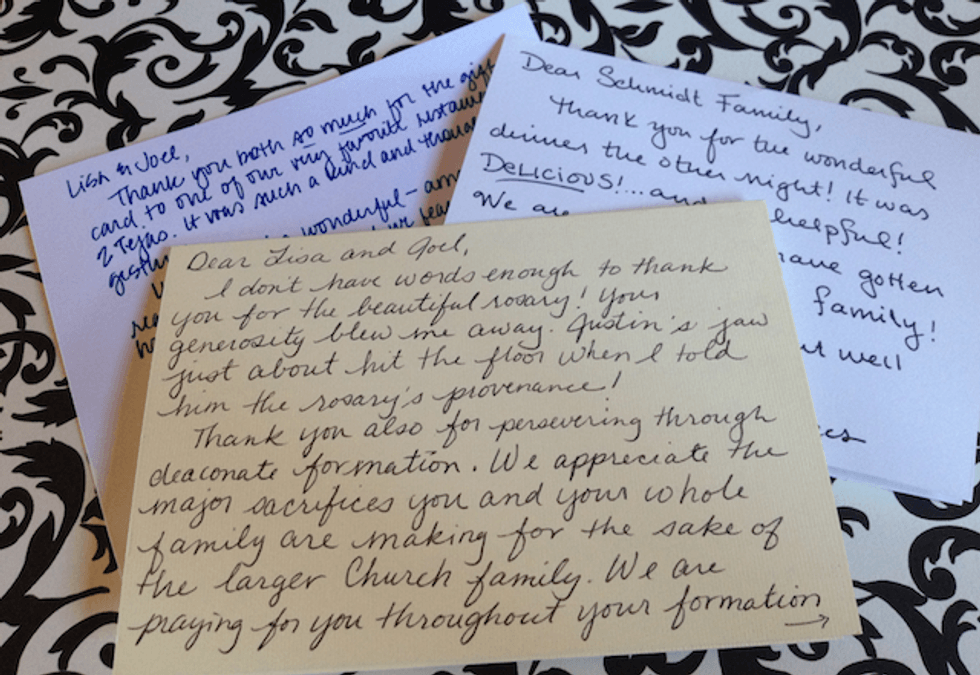 Lisa & Joel,
Thank you both so much for the gift
card to one of our very favorite
2 Tejas. It was such a kind and
wonderful –
Dear Schmidt Family,
Thank you for the wonderful
dinner the other night! It was
DELICIOUS!... and helpful!
We are have gotten
family!
well
Dear Lisa and Joel,
I don't have words enough to thank
you for the beautiful rosary! Your
generosity blew me away. Justin's jaw
just about hit the floor when I told
him the rosary's provenance!
Thank you also for persevering through
deaconate formation. We appreciate the
major sacrifices you and your whole
family are making for the sake of
the larger Church family. We are
praying for you throughout your formation
→